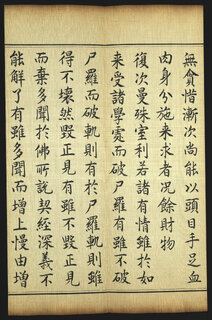 無貪惜漸次尚能以頭目手足血
肉身分施来求者況餘財物
復次曼殊室利若諸有情雖於如
来受諸學處而破尸羅有雖不破
尸羅而破軌則有於尸羅軌則雖
得不壞然毀正見有雖不毀正見
而棄多聞於佛所說契經深義不
能解了有雖多聞而增上慢由增